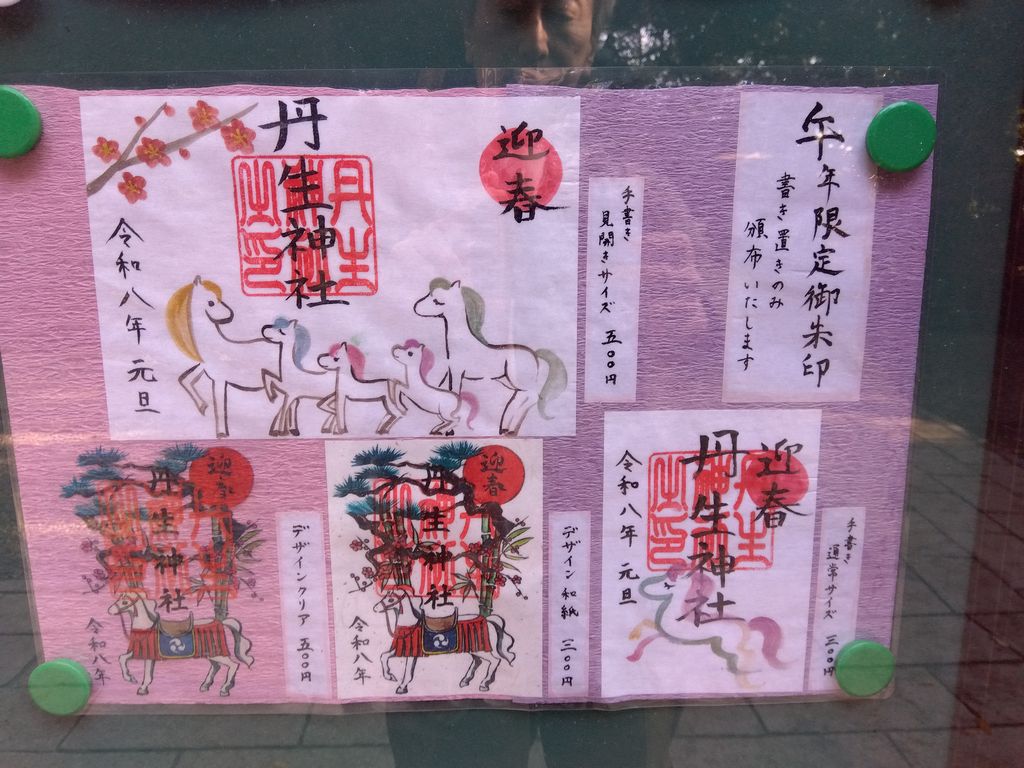 午年限定御朱印
書き置きのみ
頒布いたします
迎春
丹生神社
丹生神社之印
令和八年 元旦
手書き
見開きサイズ 五〇〇円
迎春
丹生神社
令和八年
デザインクリア 五〇〇円
迎春
丹生神社
令和八年
デザイン和紙 三〇〇円
迎春
丹生神社
丹生神社之印
令和八年 元旦
手書き
通常サイズ 三〇〇円